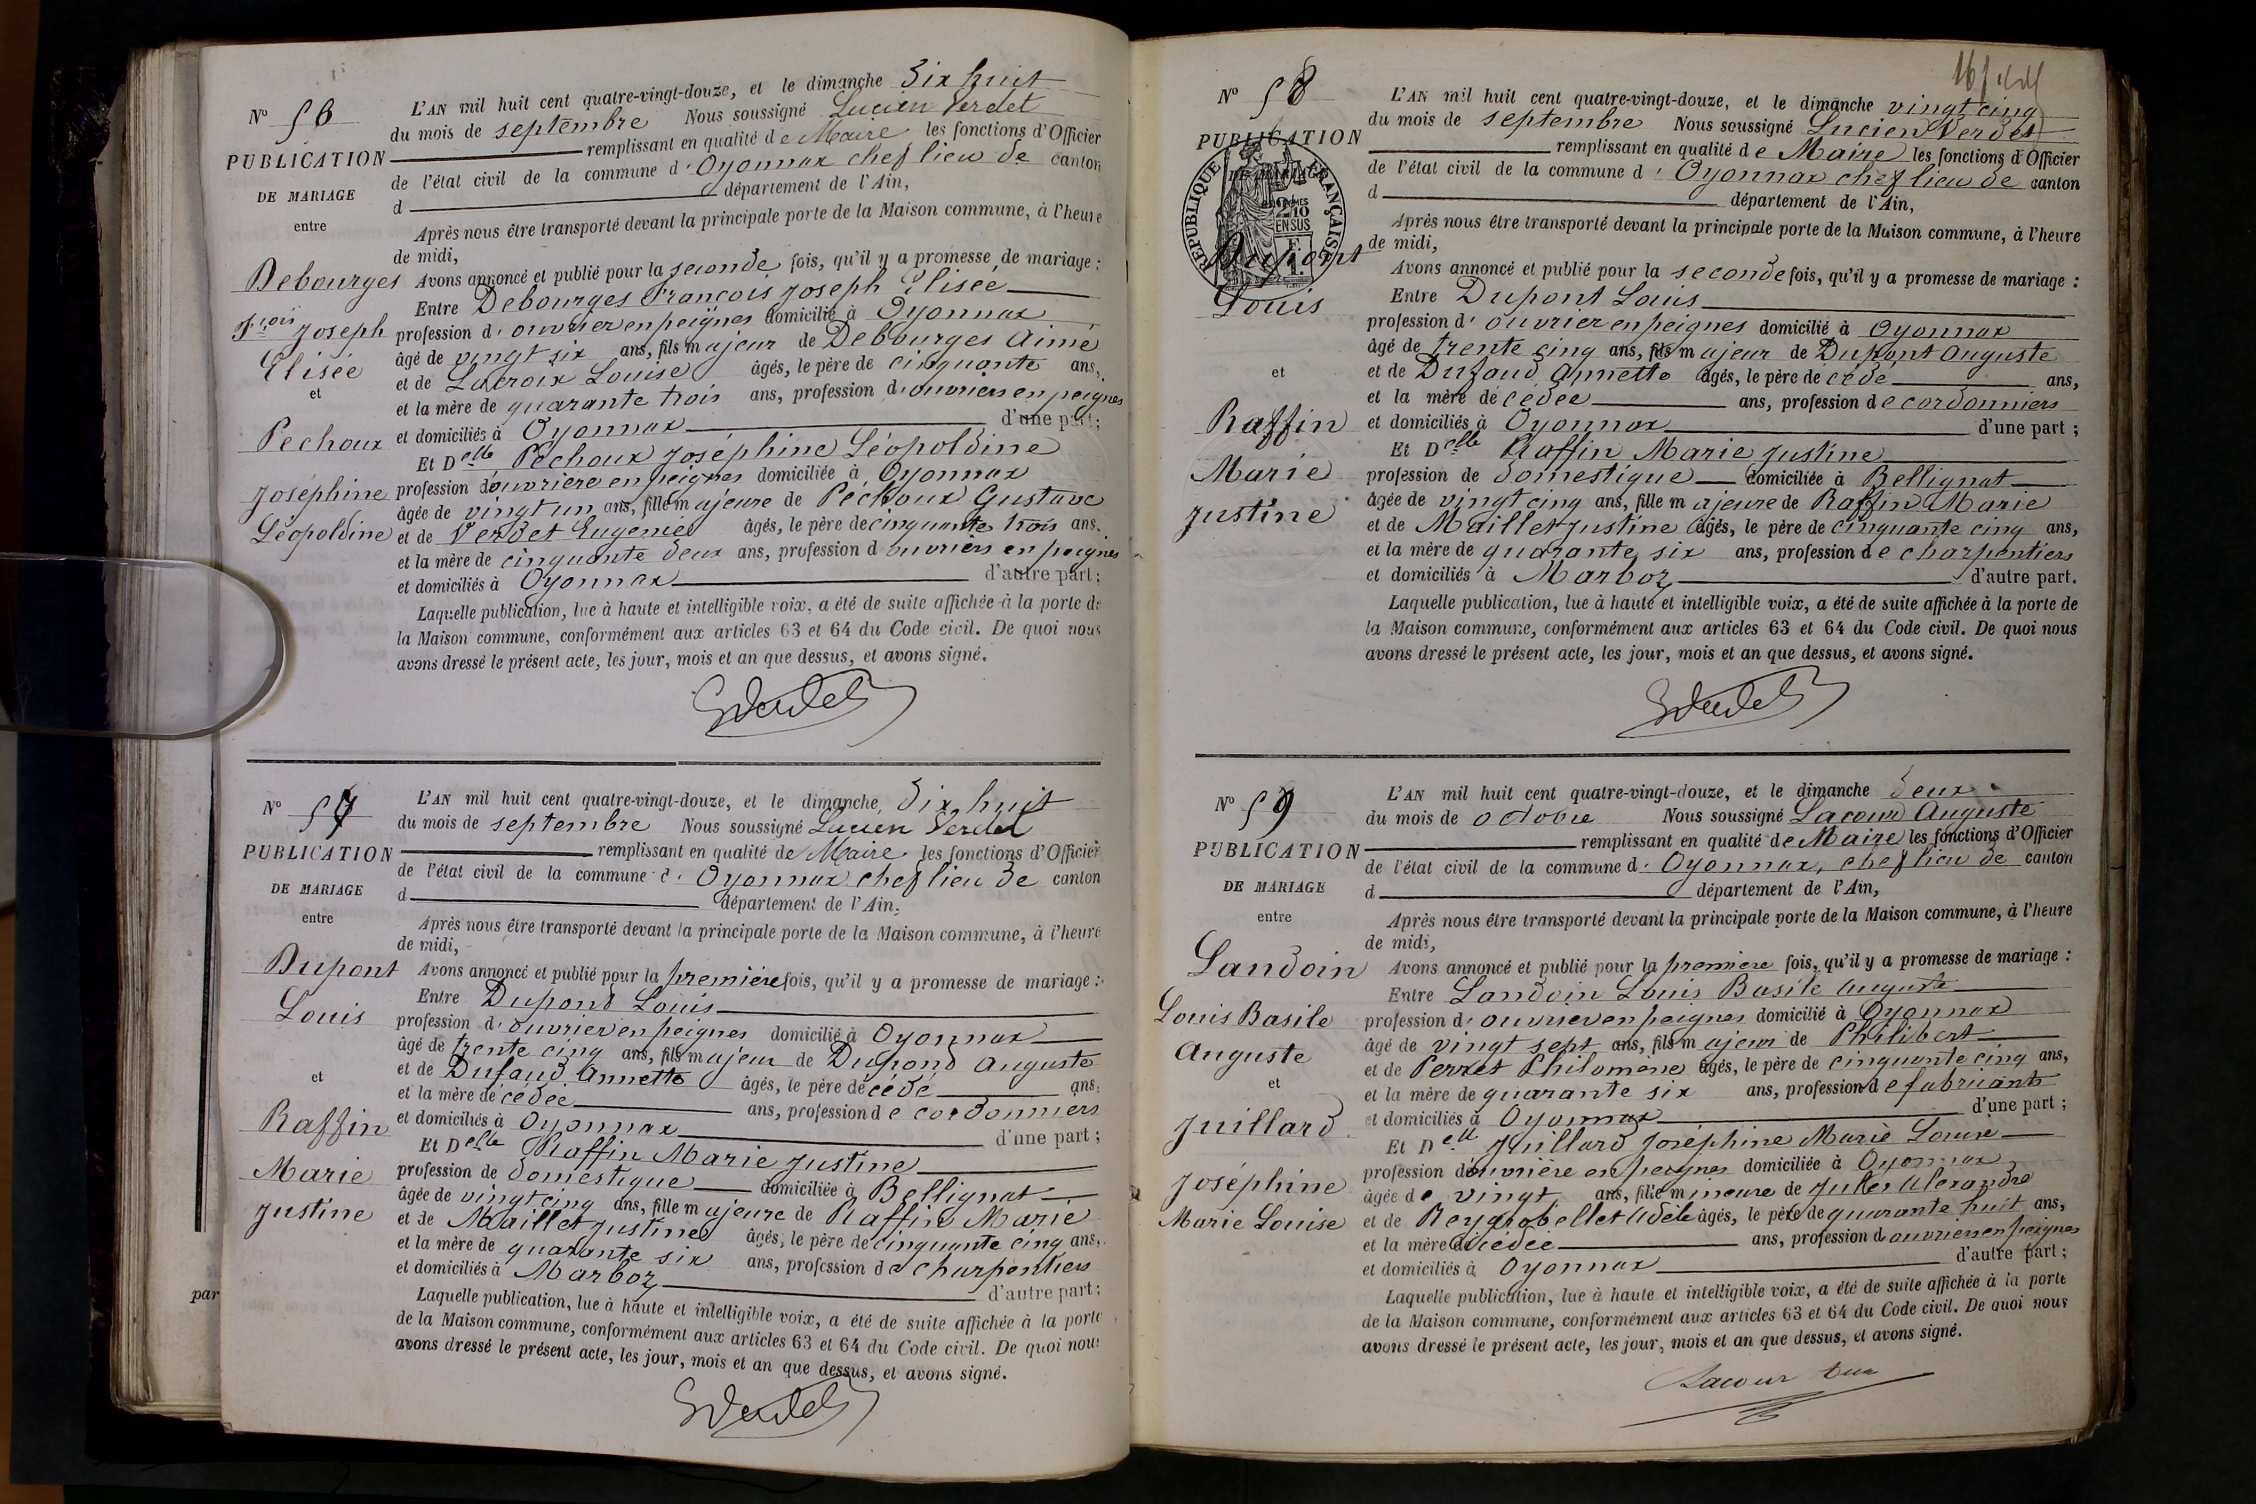 N° 56
PUBLICATION
DE MARIAGE
entre
Debourges
Fçois Joseph
Elisée
et
Pechoux
Joséphine
Léopoldine
L'AN mil huit cent quatre-vingt-douze, et le dimanche dix huit
du mois de septembre Nous soussigné Lucien Verdet
remplissant en qualité de Maire les fonctions d'Officier
de l'état civil de la commune d'Oyonnax chef lieu de canton
d département de l'Ain,
Après nous être transporté devant la principale porte de la Maison commune, à l'heure
de midi,
Avons annoncé et publié pour la seconde fois, qu'il y a promesse de mariage :
Entre Debourges François Joseph Elisée
profession d'ouvrier en peignes domicilié à Oyonnax
âgé de vingt six ans, fils majeur de Debourges Aimé
et de Lacroix Louise âgés, le père de cinquante ans,
et la mère de quarante trois ans, profession d'ouvriers en peignes
et domiciliés à Oyonnax d'une part ;
Et Delle Péchoux Joséphine Léopoldine
profession d'ouvrière en peignes domiciliée à Oyonnax
âgée de vingt un ans, fille majeure de Pechoux Gustave
et de Verdet Eugenie âgés, le père de cinquante trois ans.
et la mère de cinquante deux ans, profession d ouvriers en peignes
et domiciliés à Oyonnax d'autre part ;
Laquelle publication, lue à haute et intelligible voix, a été de suite affichée à la porte de
la Maison commune, conformément aux articles 63 et 64 du Code civil. De quoi nous
avons dressé le présent acte, les jour, mois et an que dessus, et avons signé.
N° 57
PUBLICATION
DE MARIAGE
entre
Dupont
Louis
et
Raffin
Marie
Justine
L'AN mil huit cent quatre-vingt-douze, et le dimanche dix huit
du mois de septembre Nous soussigné Lucien Verdet
remplissant en qualité de Maire les fonctions d'Officier
de l'état civil de la commune d'Oyonnax chef lieu de canton
d département de l'Ain,
Après nous être transporté devant la principale porte de la Maison commune, à l'heure
de midi,
Avons annoncé et publié pour la première fois, qu'il y a promesse de mariage :
Entre Dupond Louis
profession d'ouvrier en peignes domicilié à Oyonnax
âgé de trente cinq ans, fils majeur de Dupond Auguste
et de Dufaud Annette âgés, le père décédé ans,
et la mère décédée ans, profession de cordonniers
et domiciliés à Oyonnax d'une part ;
Et Delle Raffin Marie Justine
profession de domestique domiciliée à Bellignat
âgée de vingt cinq ans, fille majeure de Raffin Marie
et de Maillet Justine âgés, le père de cinquante cinq ans,
et la mère de quarante six ans, profession de charpentiers
et domiciliés à Marboz d'autre part ;
Laquelle publication, lue à haute et intelligible voix, a été de suite affichée à la porte
de la Maison commune, conformément aux articles 63 et 64 du Code civil. De quoi nous
avons dressé le présent acte, les jour, mois et an que dessus, et avons signé.
par
N° 58
PUBLICATION
RÉPUBLIQUE FRANÇAISE
2/10
EN SUS
Dupont
Louis
et
Raffin
Marie
Justine
L'AN mil huit cent quatre-vingt-douze, et le dimanche vingt cinq
du mois de septembre Nous soussigné Lucien Verdet
remplissant en qualité de Maire les fonctions d'Officier
de l'état civil de la commune d'Oyonnax chef lieu de canton
d département de l'Ain,
Après nous être transporté devant la principale porte de la Maison commune, à l'heure
de midi,
Avons annoncé et publié pour la seconde fois, qu'il y a promesse de mariage :
Entre Dupont Louis
profession d'ouvrier en peignes domicilié à Oyonnax
âgé de trente cinq ans, fils majeur de Dupont Auguste
et de Dufaud Annette âgés, le père décédé ans,
et la mère décédée ans, profession de cordonniers
et domiciliés à Oyonnax d'une part ;
Et Delle Raffin Marie Justine
profession de domestique domiciliée à Bellignat
âgée de vingt cinq ans, fille majeure de Raffin Marie
et de Maillet Justine âgés, le père de cinquante cinq ans,
et la mère de quarante six ans, profession de charpentiers
et domiciliés à Marboz d'autre part.
Laquelle publication, lue à haute et intelligible voix, a été de suite affichée à la porte de
la Maison commune, conformément aux articles 63 et 64 du Code civil. De quoi nous
avons dressé le présent acte, les jour, mois et an que dessus, et avons signé.
N° 59
PUBLICATION
DE MARIAGE
entre
Landoin
Louis Basile
Auguste
et
Juillard
Joséphine
Marie Louise
L'AN mil huit cent quatre-vingt-douze, et le dimanche deux
du mois de octobre Nous soussigné Lacour Auguste
remplissant en qualité de Maire les fonctions d'Officier
de l'état civil de la commune d'Oyonnax, chef lieu de canton
d département de l'Ain,
Après nous être transporté devant la principale porte de la Maison commune, à l'heure
de midi,
Avons annoncé et publié pour la première fois, qu'il y a promesse de mariage :
Entre Landoin Louis Basile Auguste
profession d'ouvrier en peignes domicilié à Oyonnax
âgé de vingt sept ans, fils majeur de Philibert
et de Perret Philomène âgés, le père de cinquante cinq ans,
et la mère de quarante six ans, profession de fabricants
et domiciliés à Oyonnax d'une part ;
Et Delle Juillard Joséphine Marie Louise
profession d'ouvrière en peignes domiciliée à Oyonnax
âgée de vingt ans, fille mineure de Jules Alexandre
et de Reygrobellet Adèle âgés, le père de quarante huit ans,
et la mère décédée ans, profession d ouvriers en peignes
et domiciliés à Oyonnax d'autre part ;
Laquelle publication, lue à haute et intelligible voix, a été de suite affichée à la porte
de la Maison commune, conformément aux articles 63 et 64 du Code civil. De quoi nous
avons dressé le présent acte, les jour, mois et an que dessus, et avons signé.
Lacour